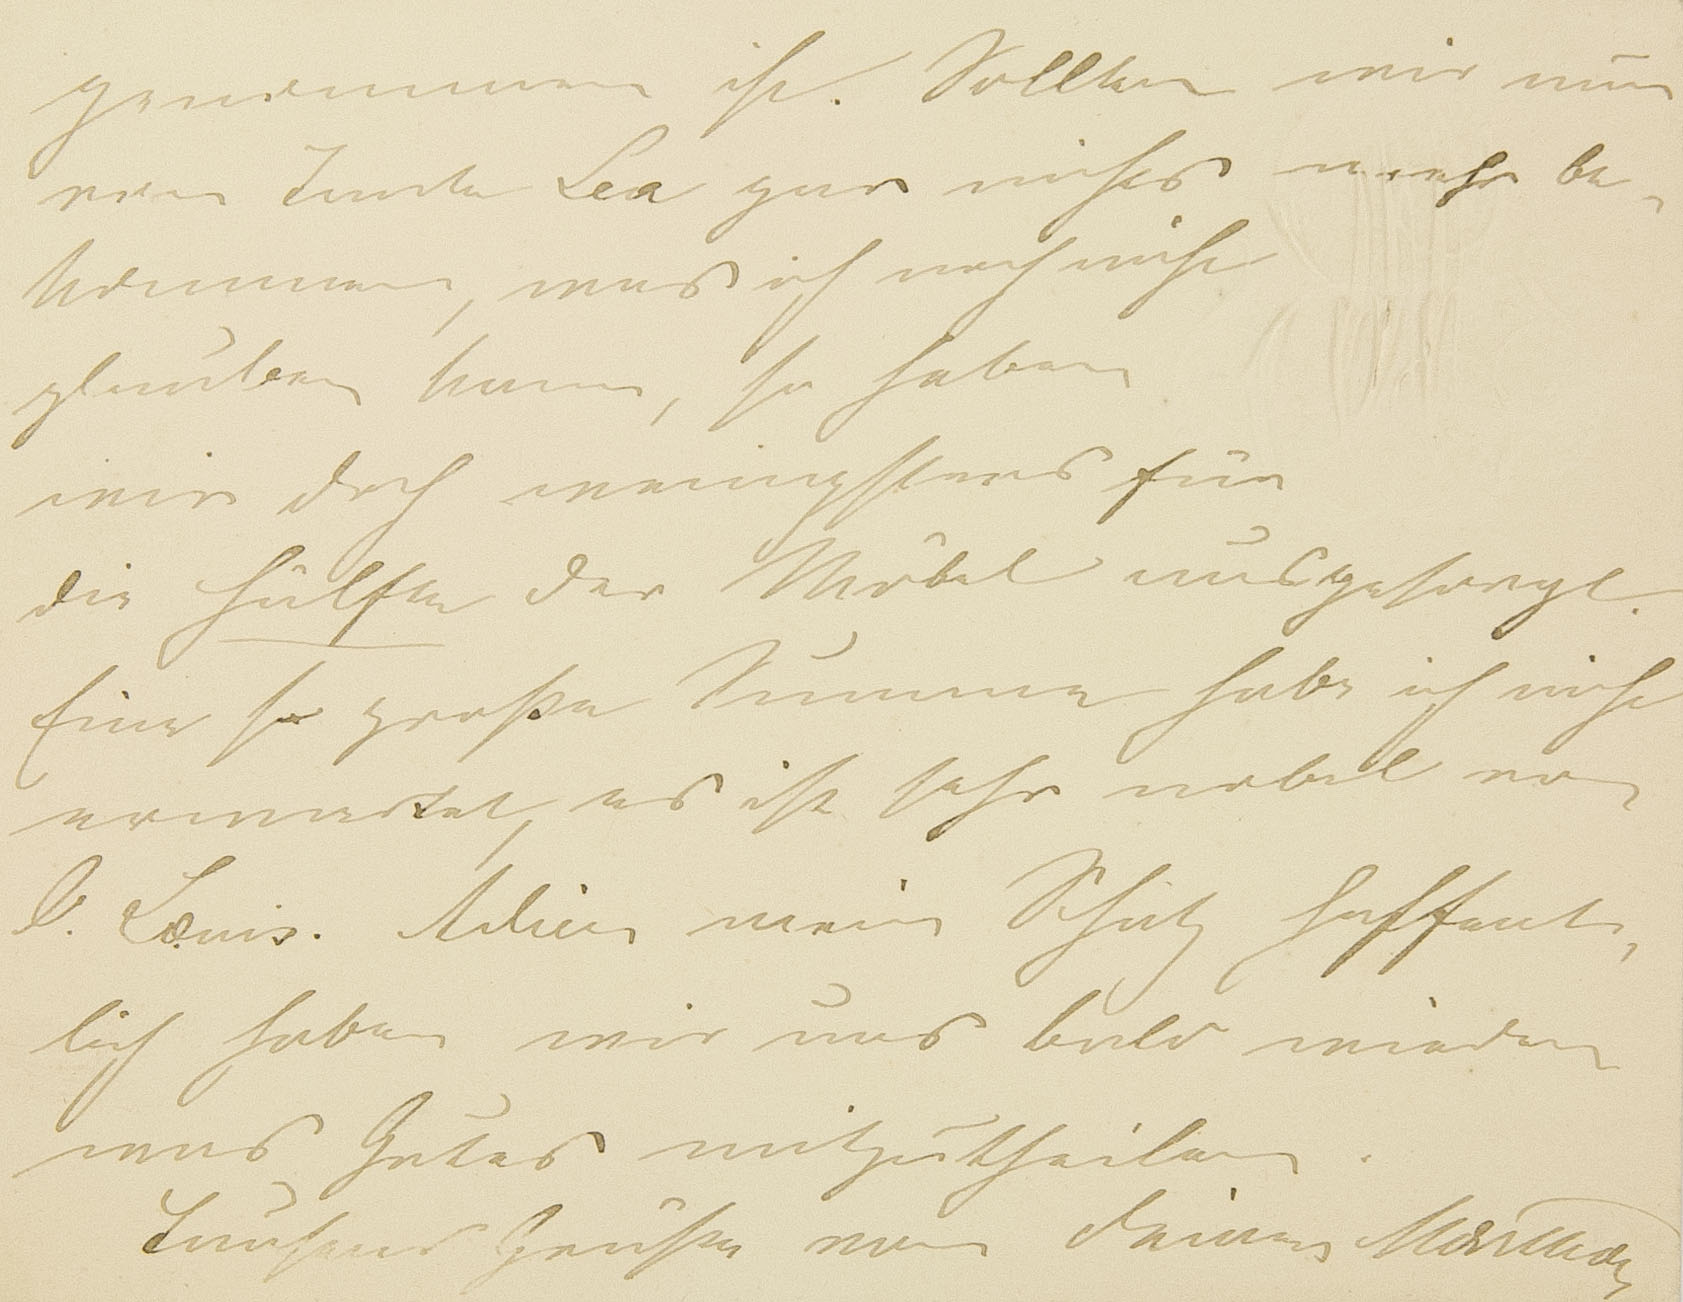 genommen ist. Sollten wir nun
von Tante Lea gar nichts mehr be-
kommen, was ich noch nicht
glauben kann, so haben
wir doch wenigstens für
die Hälfte der Möbel ausgesorgt.
Eine so große Summe habe ich nicht
erwartet, es ist sehr nobel von
O. Louis. Adieu mein Schatz hoffent-
lich haben wir uns bald wieder
was Gutes mitzutheilen.
Tausend Grüße von Deiner